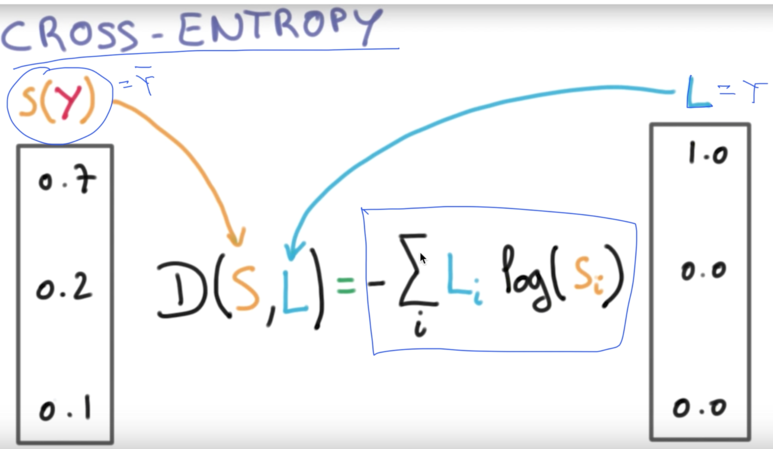 CROSS-ENTROPY
S(Y) = Ȳ
L = Y
0.7
0.2
0.1
D(S,L) = - ∑ᵢ Lᵢ log(Sᵢ)
1.0
0.0
0.0